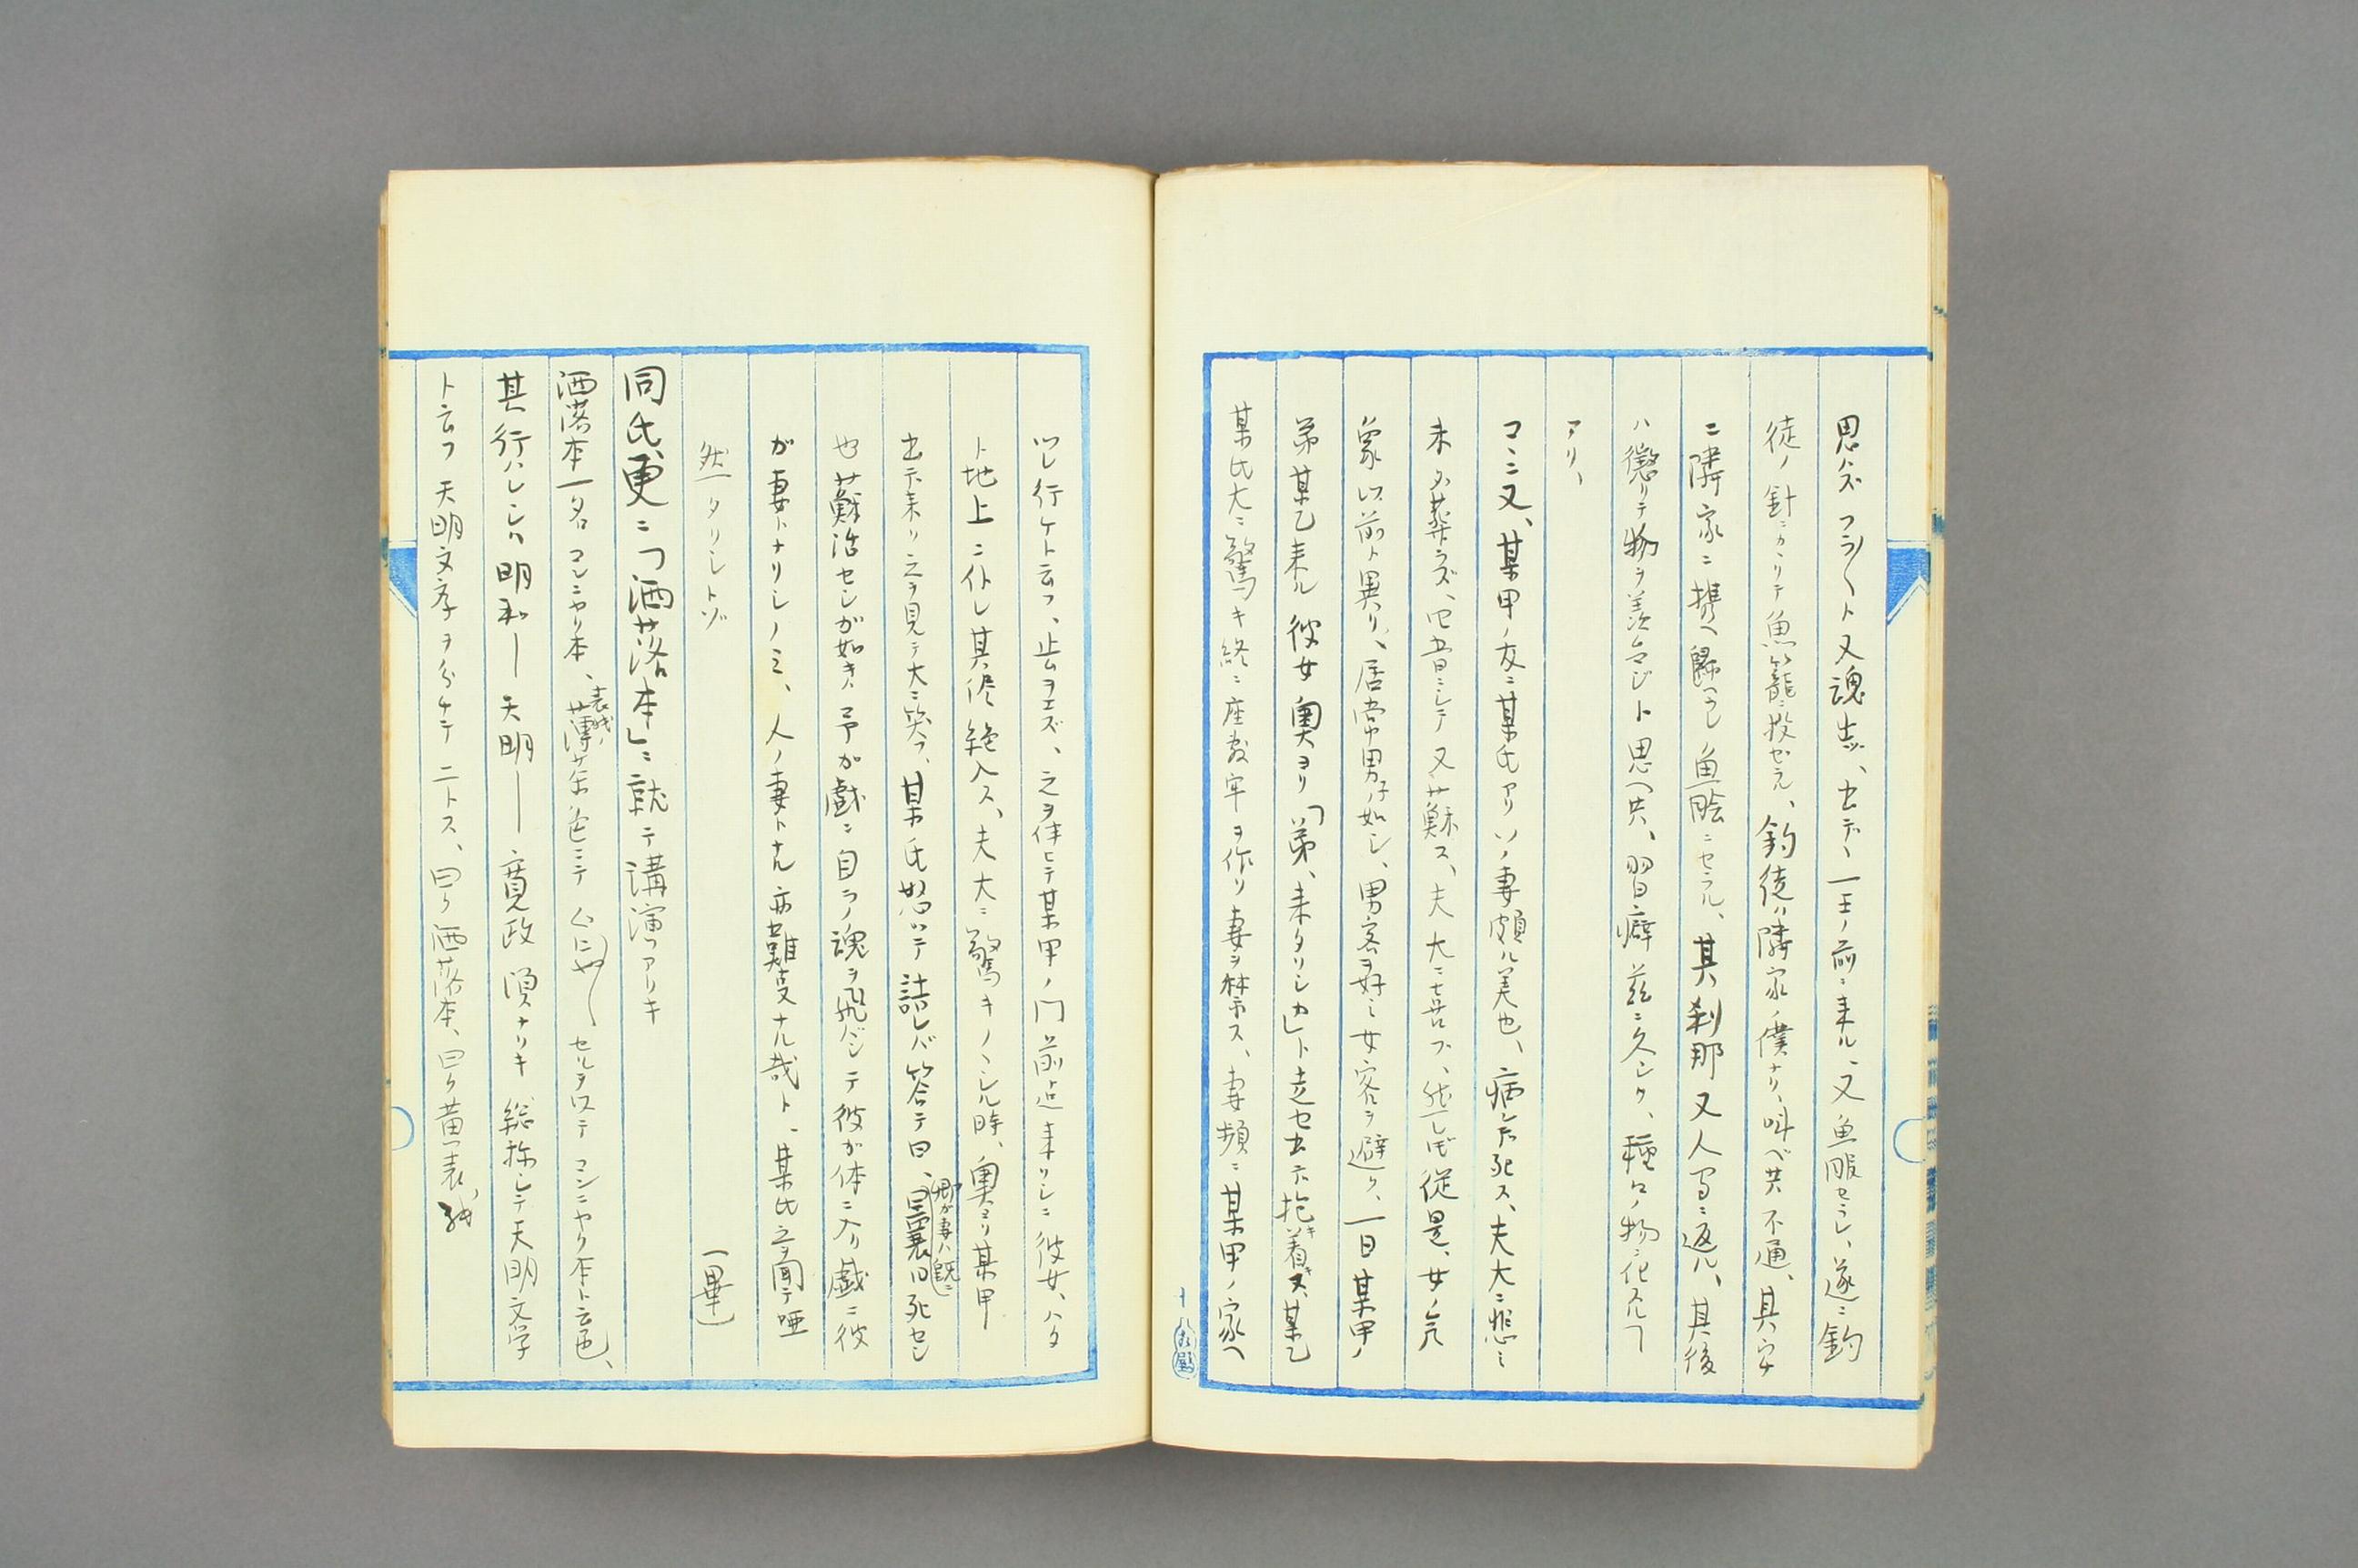 思ハズフラ〳〵ト又魂去、出デヽ一王ノ前ニ来ル、又魚服セラレ、遂ニ釣
徒ノ針ニカヽリテ魚籠ニ投ゼラル、釣徒ハ隣家ノ僕ナリ、叫ベ共不通、其
ニ隣家ニ携ヘ帰ラレ魚膾ニセラル、其刹那又人間ニ返ル、其後
ハ懲リテ物ヲ羨ムマジト思ヘ共、習癖茲ニ久シク、種々ノ物ニ化スルヿ
アリ、
コヽニ又、某甲ノ友ニ某氏アリソノ妻頗ル美也、病シテ死ス、夫大ニ悲ミ
未ダ葬ラズ、又蘇ス、夫大ニ喜ブ、然レ𪜈従是、女ノ気
象以前ト異リ、居常男子ノ如シ、男客ヲ好ミ女客ヲ避ク、一日某甲ノ
弟某乙来ル彼女奥ヨリ「弟、来タリシカ」ト走セ出テ抱キ着キヌ、某乙
某氏大ニ驚キ終ニ座敷牢ヲ作リ妻ヲ禁ス、妻頻ニ某甲ノ家ヘ
ツレ行ケト云フ、止ヲエズ、之ヲ伴ヒテ某甲ノ門前近来リシニ彼女、ハタ
ト地上ニ仆レ其侭絶入ス、夫大ニ驚キノヽシル時、奥ヨリ某甲
出テ来リ之ヲ見テ大ニ笑フ、某氏怒ツテ詰レバ答テ曰、「卿ガ妻ハ既ニ曩日死セシ
也蘇活セシガ如キハ予ガ戯ニ自ラノ魂ヲ飛バシテ彼ガ体ニ入リ戯ニ彼
ガ妻トナリシノミ、人ノ妻トナル亦難夏ナル哉ト、某氏之ヲ聞テ唖
然タリシトゾ
(畢)
同氏更ニ「洒落本」ニ就テ講演アリキ
洒落本一名コンニヤク本、表紙ノ薄茶色ニテぐにや〳〵セルヲ以テコンニヤク本ト云也、
其行ハレシハ明和―天明―寛政頃ナリキ総称シテ天明文学
ト云フ天明文学ヲ分チテ二トス、曰ク洒落本、曰ク黄表紙